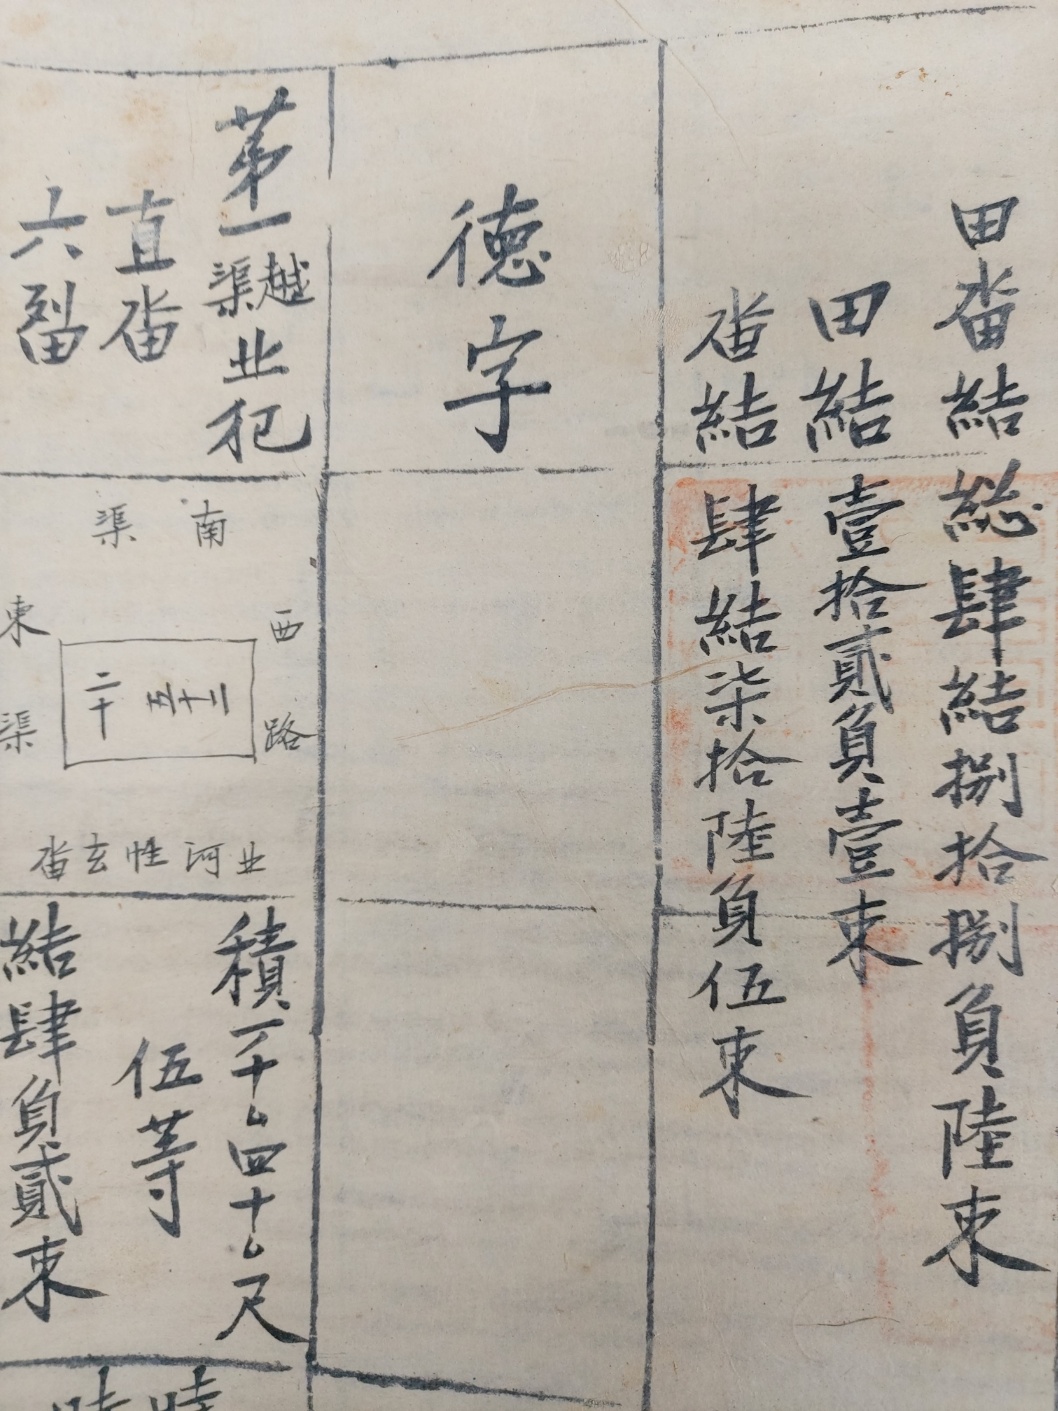 田畓結総肆結捌拾捌負陸束
田結壹拾貳負壹束
畓結肆結柒拾陸負伍束
德字
苐一越渠北犯
直畓
六㽝
南渠
西路
東渠
二十
五十二
北河性玄畓
積一千四十尺
伍等
結肆負貳束